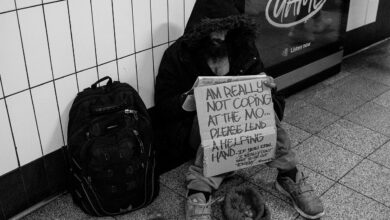 GAME
Listen now
AM REALLY
NOT COPING
AT THE MO...
PLEASE LEND
A HELPING
HAND. IF YOU